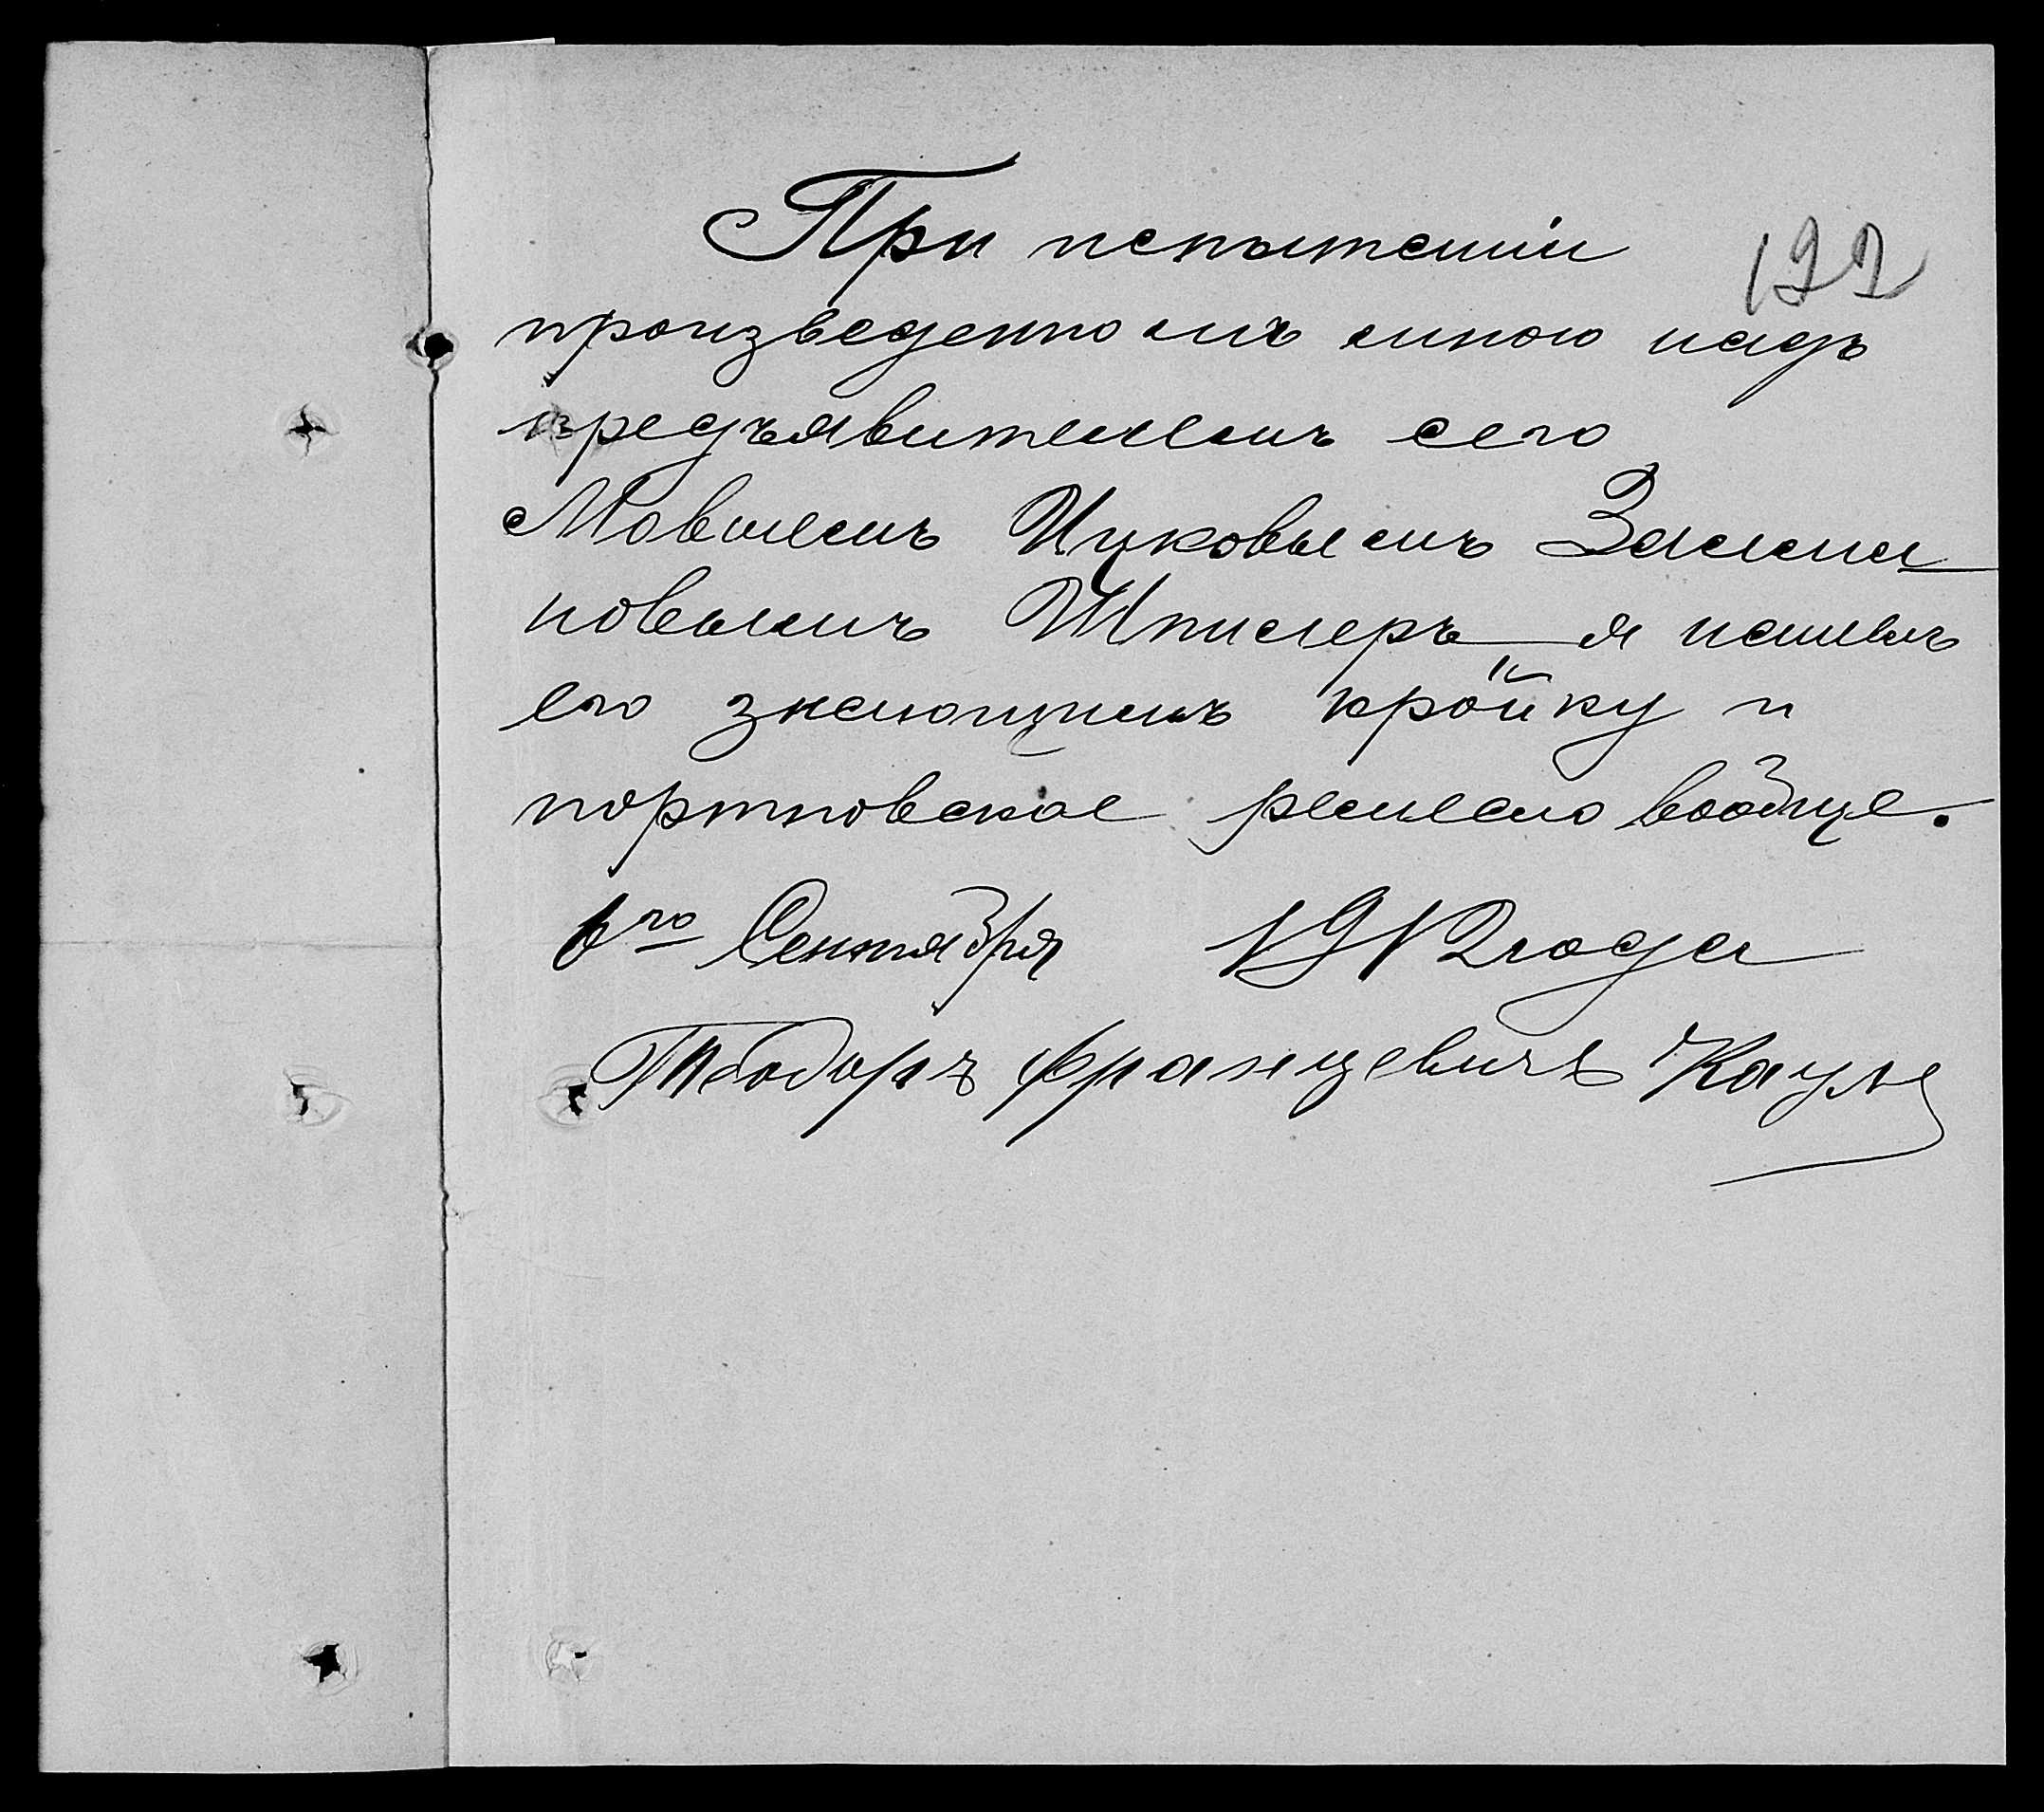 При испытаніи
122
произведенномъ мною надъ
предъявителемъ сего
Мовшемъ Ицковымъ Залма
новымъ Шписеръ я нашелъ
его знающимъ кройку и
портновское ремесло вообще.
6го Сентября 1912 года
Теодоръ Францевичъ